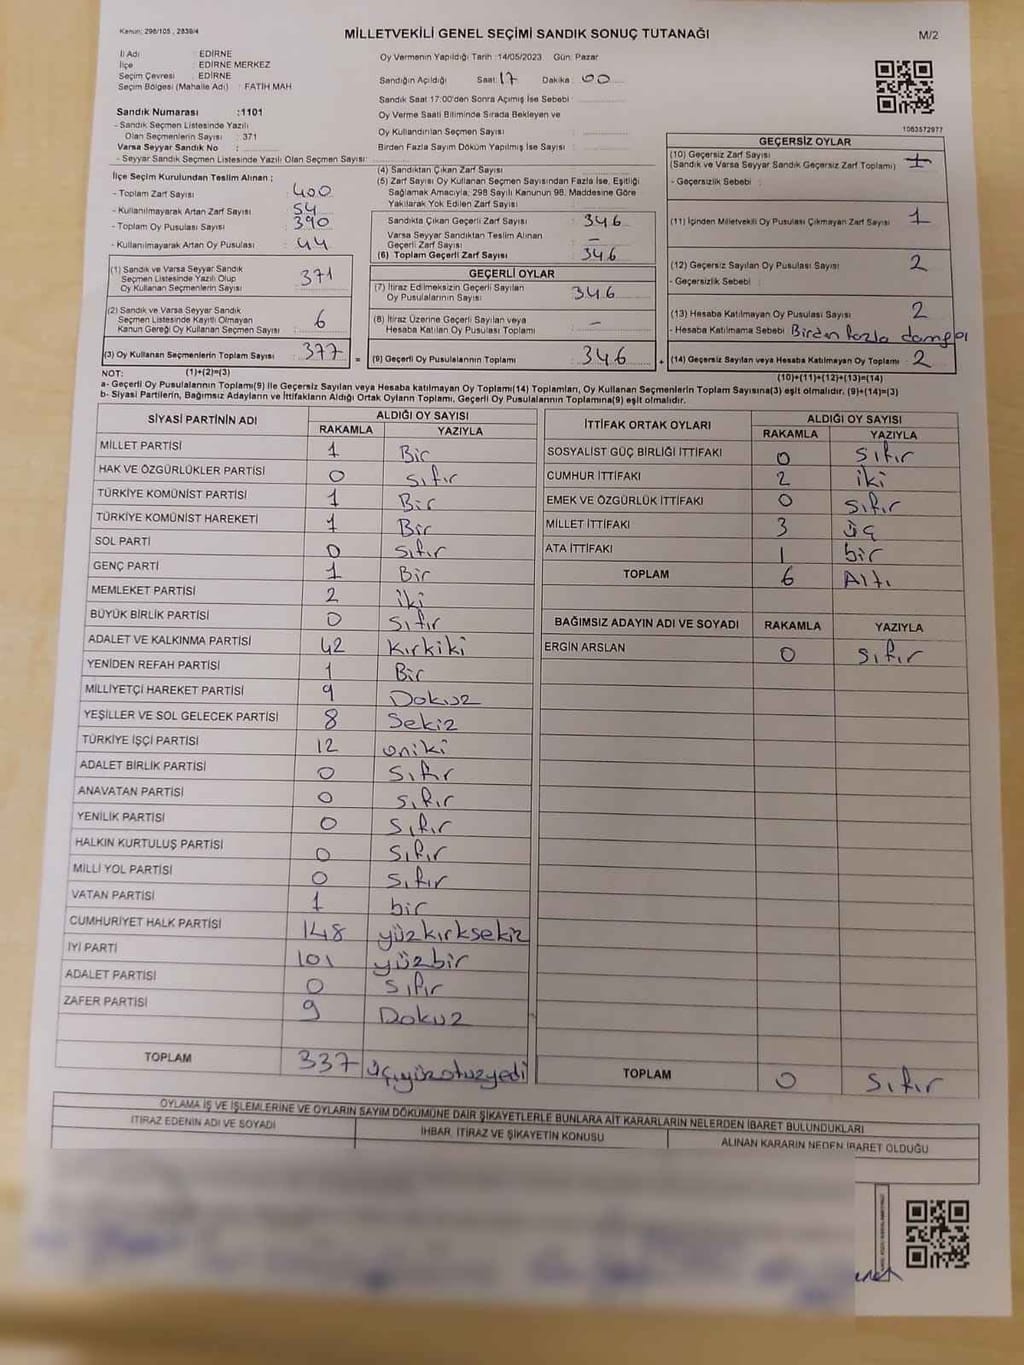 Kanun: 298/105 , 2839/4
MİLLETVEKİLİ GENEL SEÇİMİ SANDIK SONUÇ TUTANAĞI
M/2
İl Adı : EDİRNE
İlçe : EDİRNE MERKEZ
Seçim Çevresi : EDİRNE
Seçim Bölgesi (Mahalle Adı) : FATİH MAH
Sandık Numarası :1101
- Sandık Seçmen Listesinde Yazılı
Olan Seçmenlerin Sayısı : 371
Varsa Seyyar Sandık No :
- Seyyar Sandık Seçmen Listesinde Yazılı Olan Seçmen Sayısı:
İlçe Seçim Kurulundan Teslim Alınan ;
- Toplam Zarf Sayısı : 400
- Kullanılmayarak Artan Zarf Sayısı : 54
- Toplam Oy Pusulası Sayısı : 390
- Kullanılmayarak Artan Oy Pusulası : 44
(1) Sandık ve Varsa Seyyar Sandık
Seçmen Listesinde Yazılı Olup
Oy Kullanan Seçmenlerin Sayısı : 371
(2) Sandık ve Varsa Seyyar Sandık
Seçmen Listesinde Kayıtlı Olmayan
Kanun Gereği Oy Kullanan Seçmen Sayısı : 6
(3) Oy Kullanan Seçmenlerin Toplam Sayısı : 377
Oy Vermenin Yapıldığı Tarih :14/05/2023 Gün: Pazar
Sandığın Açıldığı Saat: 17 Dakika : 00
Sandık Saat 17:00'den Sonra Açımış İse Sebebi :
Oy Verme Saati Bitiminde Sırada Bekleyen ve
Oy Kullandırılan Seçmen Sayısı :
Birden Fazla Sayım Döküm Yapılmış İse Sayısı :
(4) Sandıktan Çıkan Zarf Sayısı :
(5) Zarf Sayısı Oy Kullanan Seçmen Sayısından Fazla İse, Eşitliği
Sağlamak Amacıyla, 298 Sayılı Kanunun 98. Maddesine Göre
Yakılarak Yok Edilen Zarf Sayısı :
Sandıkta Çıkan Geçerli Zarf Sayısı : 346
Varsa Seyyar Sandıktan Teslim Alınan
Geçerli Zarf Sayısı : –
(6) Toplam Geçerli Zarf Sayısı : 346
GEÇERLİ OYLAR
(7) İtiraz Edilmeksizin Geçerli Sayılan
Oy Pusulalarının Sayısı : 346
(8) İtiraz Üzerine Geçerli Sayılan veya
Hesaba Katılan Oy Pusulası Toplamı : –
= (9) Geçerli Oy Pusulalarının Toplamı : 346 +
1063572977
GEÇERSİZ OYLAR
(10) Geçersiz Zarf Sayısı
(Sandık ve Varsa Seyyar Sandık Geçersiz Zarf Toplamı) :
- Geçersizlik Sebebi :
(11) İçinden Milletvekili Oy Pusulası Çıkmayan Zarf Sayısı : 1
(12) Geçersiz Sayılan Oy Pusulası Sayısı : 2
- Geçersizlik Sebebi :
(13) Hesaba Katılmayan Oy Pusulası Sayısı : 2
- Hesaba Katılmama Sebebi : Birden fazla damga
(14) Geçersiz Sayılan veya Hesaba Katılmayan Oy Toplamı : 2
NOT: (1)+(2)=(3) (10)+(11)+(12)+(13)=(14)
a- Geçerli Oy Pusulalarının Toplamı(9) ile Geçersiz Sayılan veya Hesaba katılmayan Oy Toplamı(14) Toplamları, Oy Kullanan Seçmenlerin Toplam Sayısına(3) eşit olmalıdır. (9)+(14)=(3)
b- Siyasi Partilerin, Bağımsız Adayların ve İttifakların Aldığı Ortak Oyların Toplamı, Geçerli Oy Pusulalarının Toplamına(9) eşit olmalıdır.
SİYASİ PARTİNİN ADI ALDIĞI OY SAYISI
RAKAMLA YAZIYLA
MİLLET PARTİSİ 1 Bir
HAK VE ÖZGÜRLÜKLER PARTİSİ 0 Sıfır
TÜRKİYE KOMÜNİST PARTİSİ 1 Bir
TÜRKİYE KOMÜNİST HAREKETİ 1 Bir
SOL PARTİ 0 Sıfır
GENÇ PARTİ 1 Bir
MEMLEKET PARTİSİ 2 iki
BÜYÜK BİRLİK PARTİSİ 0 Sıfır
ADALET VE KALKINMA PARTİSİ 42 Kırkiki
YENİDEN REFAH PARTİSİ 1 Bir
MİLLİYETÇİ HAREKET PARTİSİ 9 Dokuz
YEŞİLLER VE SOL GELECEK PARTİSİ 8 Sekiz
TÜRKİYE İŞÇİ PARTİSİ 12 oniki
ADALET BİRLİK PARTİSİ 0 Sıfır
ANAVATAN PARTİSİ 0 Sıfır
YENİLİK PARTİSİ 0 Sıfır
HALKIN KURTULUŞ PARTİSİ 0 Sıfır
MİLLİ YOL PARTİSİ 0 Sıfır
VATAN PARTİSİ 1 bir
CUMHURİYET HALK PARTİSİ 148 yüzkırksekiz
İYİ PARTİ 101 yüzbir
ADALET PARTİSİ 0 Sıfır
ZAFER PARTİSİ 9 Dokuz
TOPLAM 337 üçyüzotuzyedi
İTTİFAK ORTAK OYLARI ALDIĞI OY SAYISI
RAKAMLA YAZIYLA
SOSYALİST GÜÇ BİRLİĞİ İTTİFAKI 0 Sıfır
CUMHUR İTTİFAKI 2 iki
EMEK VE ÖZGÜRLÜK İTTİFAKI 0 Sıfır
MİLLET İTTİFAKI 3 üç
ATA İTTİFAKI 1 bir
TOPLAM 6 Altı
BAĞIMSIZ ADAYIN ADI VE SOYADI RAKAMLA YAZIYLA
ERGİN ARSLAN 0 Sıfır
TOPLAM 0 Sıfır
OYLAMA İŞ VE İŞLEMLERİNE VE OYLARIN SAYIM DÖKÜMÜNE DAİR ŞİKAYETLERLE BUNLARA AİT KARARLARIN NELERDEN İBARET BULUNDUKLARI
İTİRAZ EDENİN ADI VE SOYADI İHBAR, İTİRAZ VE ŞİKAYETİN KONUSU ALINAN KARARIN NEDEN İBARET OLDUĞU